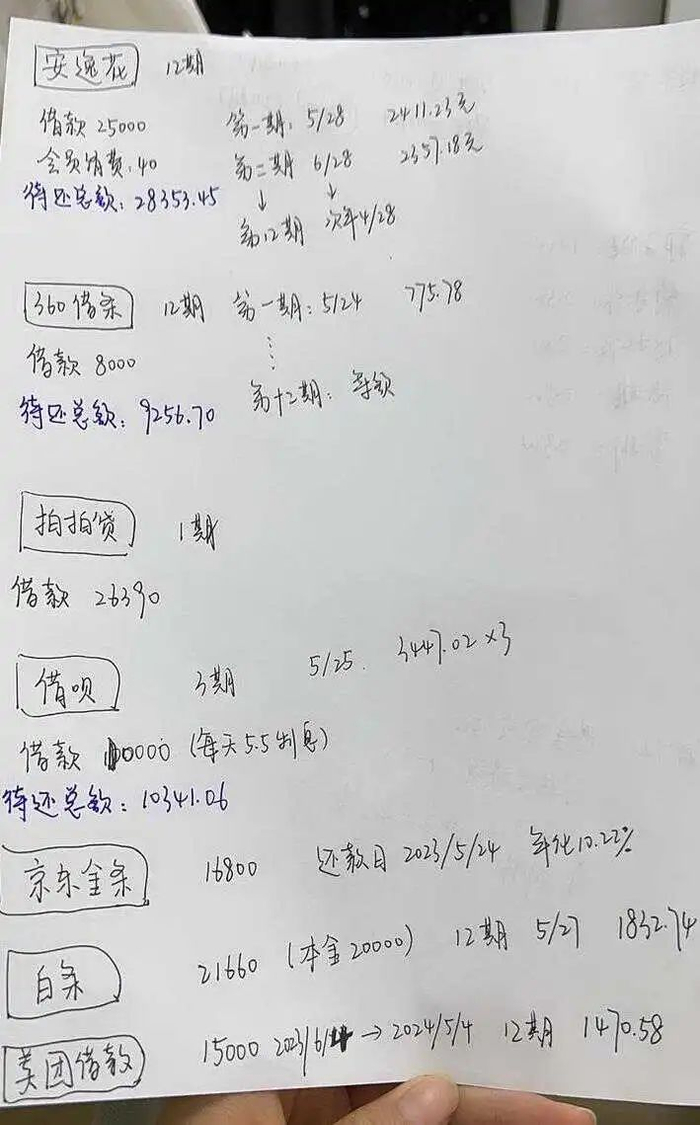 安逸花 12期
借款 25000 第一期: 5/28 2411.23元
会员消费: 40 第二期 6/28 2357.18元
待还总额: 28353.45 ↓ ↓
第12期 次年4/28
360借条 12期 第一期: 5/24 775.78
借款 8000
待还总额: 9256.70 第十二期: 等额
拍拍贷 1期
借款 26390
借呗 3期 5/25. 3447.02×3
借款 10000 (每天5.5利息)
待还总额: 10341.06
京东金条 16800 还款日 2023/5/24 年化10.22%
白条 21660 (本金20000) 12期 5/27 1832.74
美团借款 15000 2023/6/4 → 2024/5/4 12期 1470.58